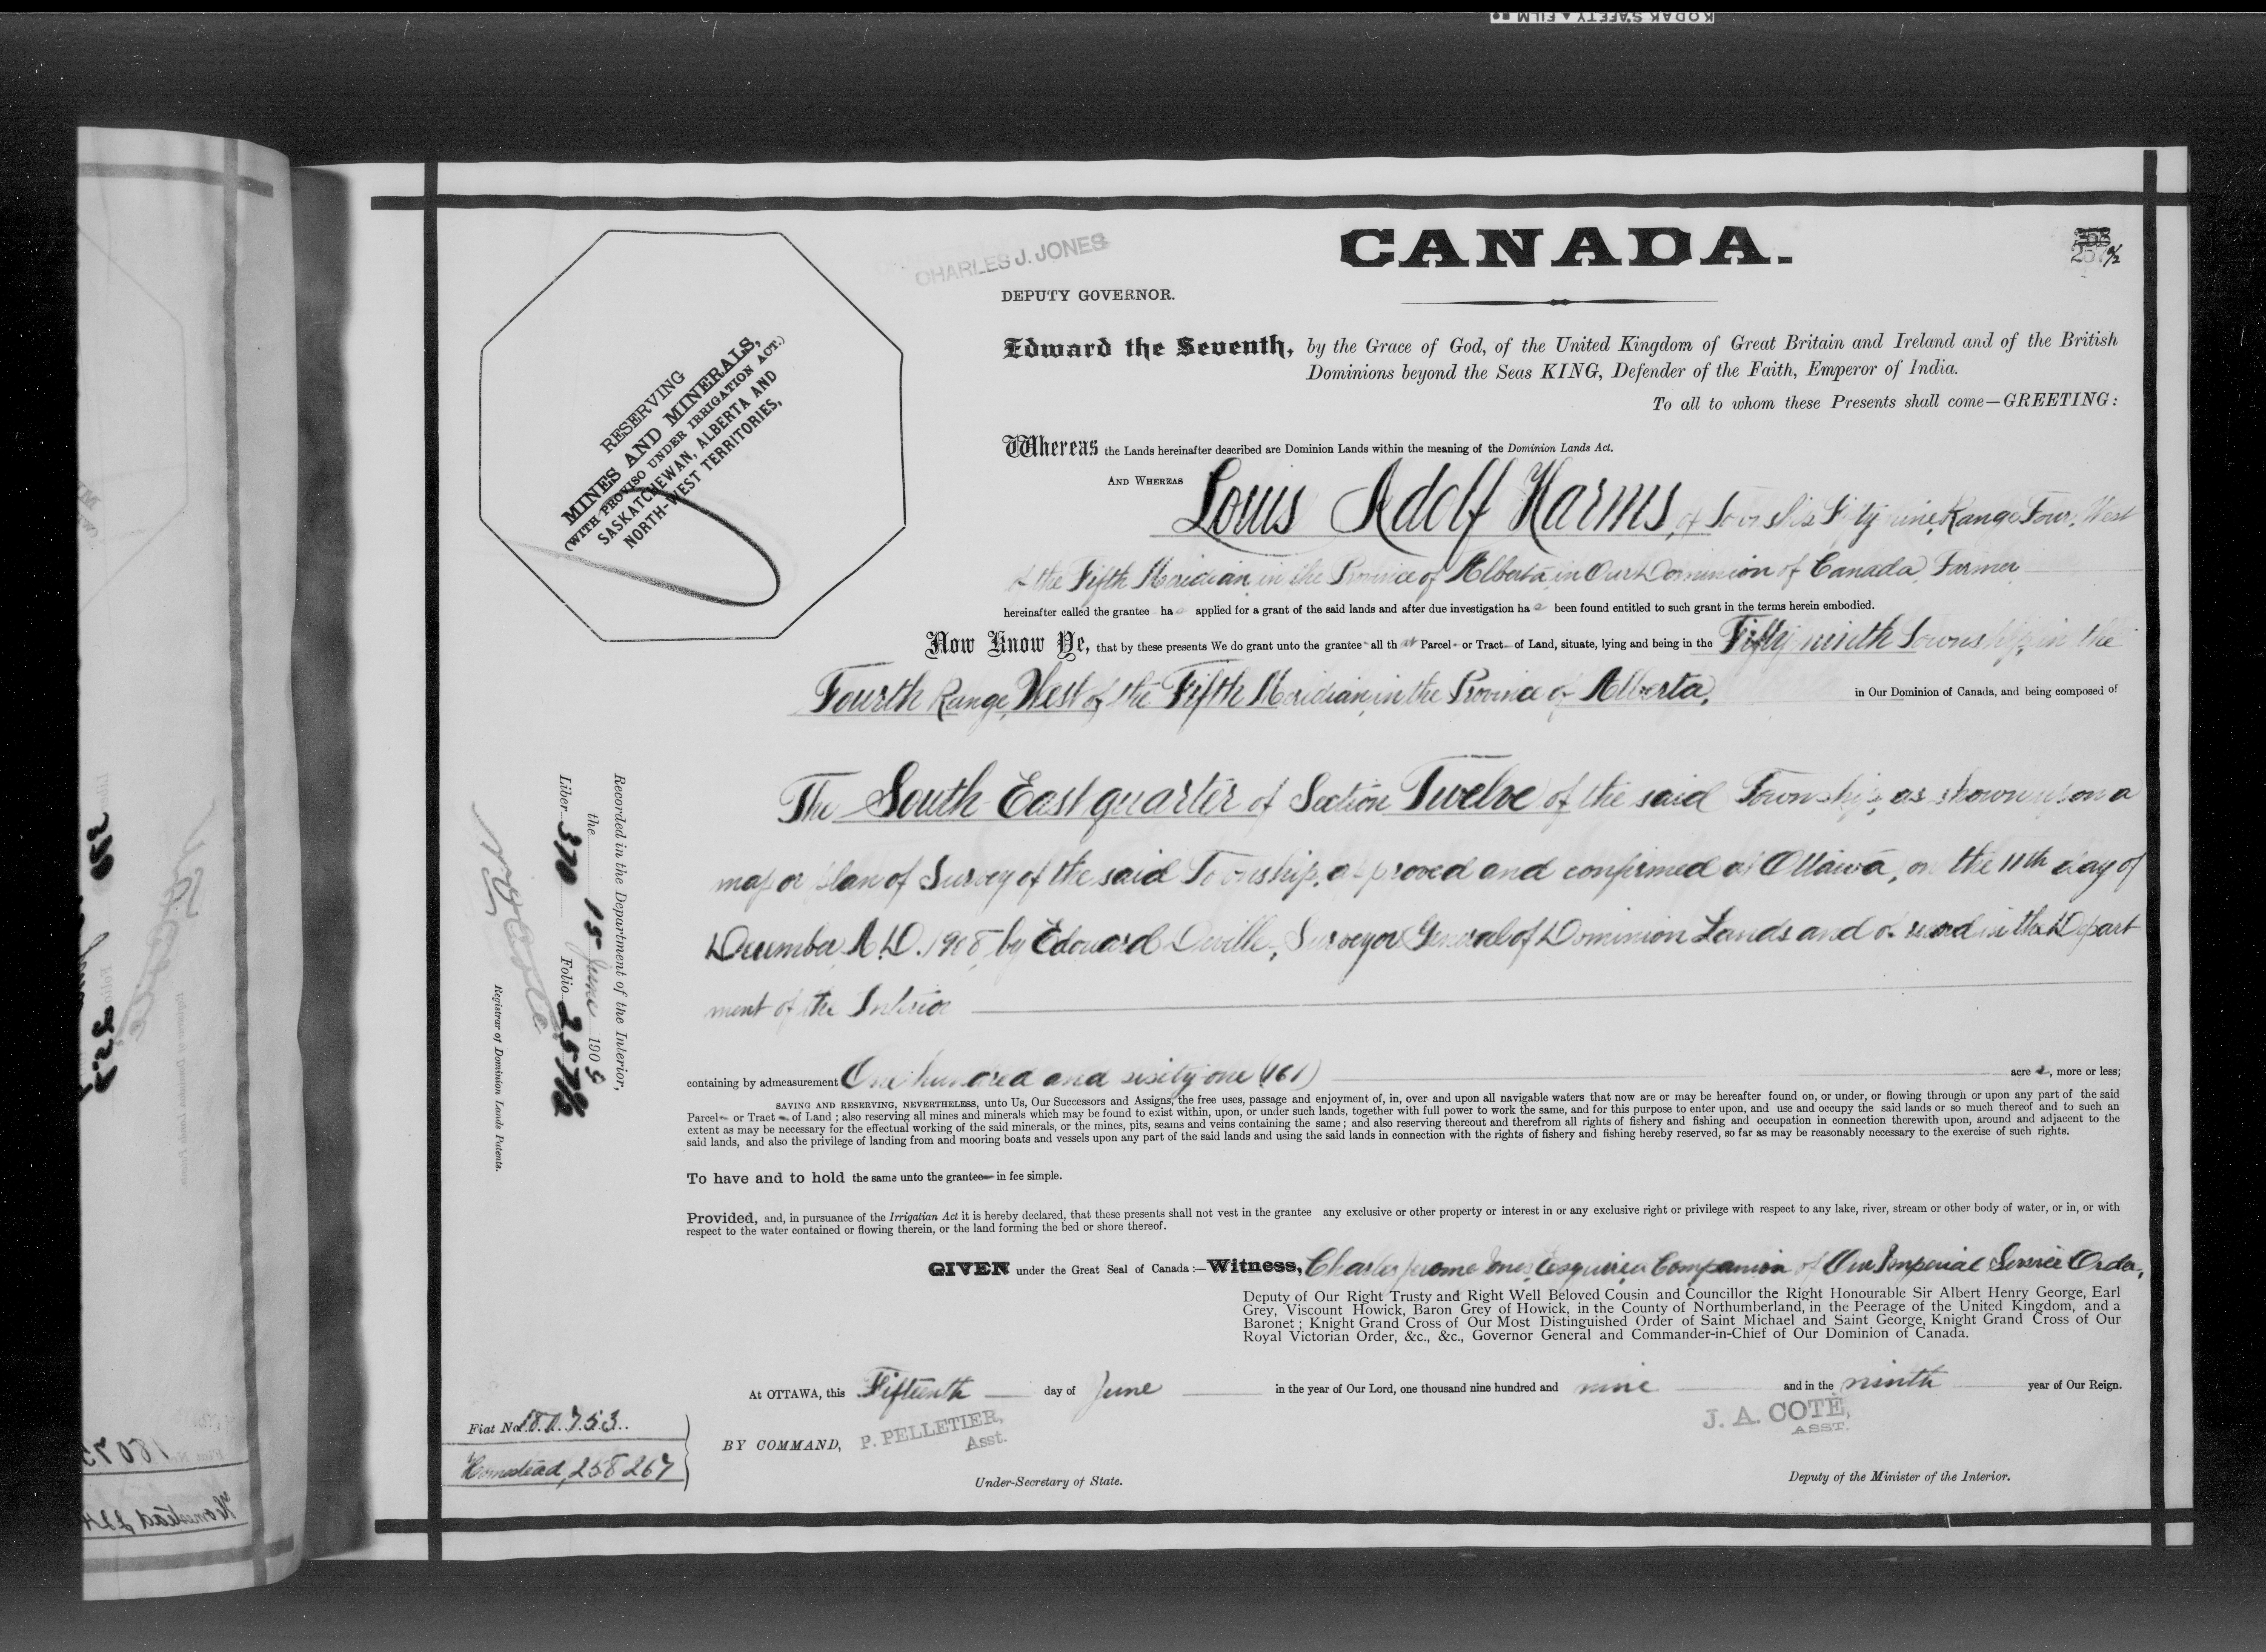 KODAK SAFETY FILM
CANADA.
CHARLES J. JONES
257½
DEPUTY GOVERNOR.
Edward the Seventh, by the Grace of God, of the United Kingdom of Great Britain and Ireland and of the British
Dominions beyond the Seas KING, Defender of the Faith, Emperor of India.
To all to whom these Presents shall come—GREETING:
RESERVING
MINES AND MINERALS,
(WITH PROVISO UNDER IRRIGATION ACT.)
SASKATCHEWAN, ALBERTA AND
NORTH-WEST TERRITORIES,
Whereas the Lands hereinafter described are Dominion Lands within the meaning of the Dominion Lands Act.
AND WHEREAS Louis Adolf Harms, of Township Fifty nine, Range Four, West
of the Fifth Meridian, in the Province of Alberta, in Our Dominion of Canada, Farmer
hereinafter called the grantee has applied for a grant of the said lands and after due investigation has been found entitled to such grant in the terms herein embodied.
Now Know Ye, that by these presents We do grant unto the grantee all that Parcel or Tract of Land, situate, lying and being in the Fifty ninth Township, in the
Fourth Range, West of the Fifth Meridian, in the Province of Alberta, in Our Dominion of Canada, and being composed of
The South East quarter of Section Twelve of the said Township, as shown upon a
map or plan of Survey of the said Township, approved and confirmed at Ottawa, on the 11th day of
December, A.D. 1908, by Edouard Deville, Surveyor General of Dominion Lands and of record in the Depart
ment of the Interior
containing by admeasurement One hundred and sixty one (161) acres, more or less;
SAVING AND RESERVING, NEVERTHELESS, unto Us, Our Successors and Assigns, the free uses, passage and enjoyment of, in, over and upon all navigable waters that now are or may be hereafter found on, or under, or flowing through or upon any part of the said
Parcel or Tract of Land; also reserving all mines and minerals which may be found to exist within, upon, or under such lands, together with full power to work the same, and for this purpose to enter upon, and use and occupy the said lands or so much thereof and to such an
extent as may be necessary for the effectual working of the said minerals, or the mines, pits, seams and veins containing the same; and also reserving thereout and therefrom all rights of fishery and fishing and occupation in connection therewith upon, around and adjacent to the
said lands, and also the privilege of landing from and mooring boats and vessels upon any part of the said lands and using the said lands in connection with the rights of fishery and fishing hereby reserved, so far as may be reasonably necessary to the exercise of such rights.
To have and to hold the same unto the grantee in fee simple.
Provided, and, in pursuance of the Irrigation Act it is hereby declared, that these presents shall not vest in the grantee any exclusive or other property or interest in or any exclusive right or privilege with respect to any lake, river, stream or other body of water, or in, or with
respect to the water contained or flowing therein, or the land forming the bed or shore thereof.
GIVEN under the Great Seal of Canada:—Witness, Charles Jerome Jones, Esquire, a Companion of Our Imperial Service Order,
Deputy of Our Right Trusty and Right Well Beloved Cousin and Councillor the Right Honourable Sir Albert Henry George, Earl
Grey, Viscount Howick, Baron Grey of Howick, in the County of Northumberland, in the Peerage of the United Kingdom, and a
Baronet; Knight Grand Cross of Our Most Distinguished Order of Saint Michael and Saint George, Knight Grand Cross of Our
Royal Victorian Order, &c., &c., Governor General and Commander-in-Chief of Our Dominion of Canada.
At OTTAWA, this Fifteenth day of June in the year of Our Lord, one thousand nine hundred and nine and in the ninth year of Our Reign.
BY COMMAND, P. PELLETIER,
Asst.
Under-Secretary of State.
J. A. COTÉ,
ASST.
Deputy of the Minister of the Interior.
Recorded in the Department of the Interior,
the 15 June 1909
Liber 370 Folio 257½
Registrar of Dominion Lands Patents.
Fiat No. 180753
Homestead, 258267